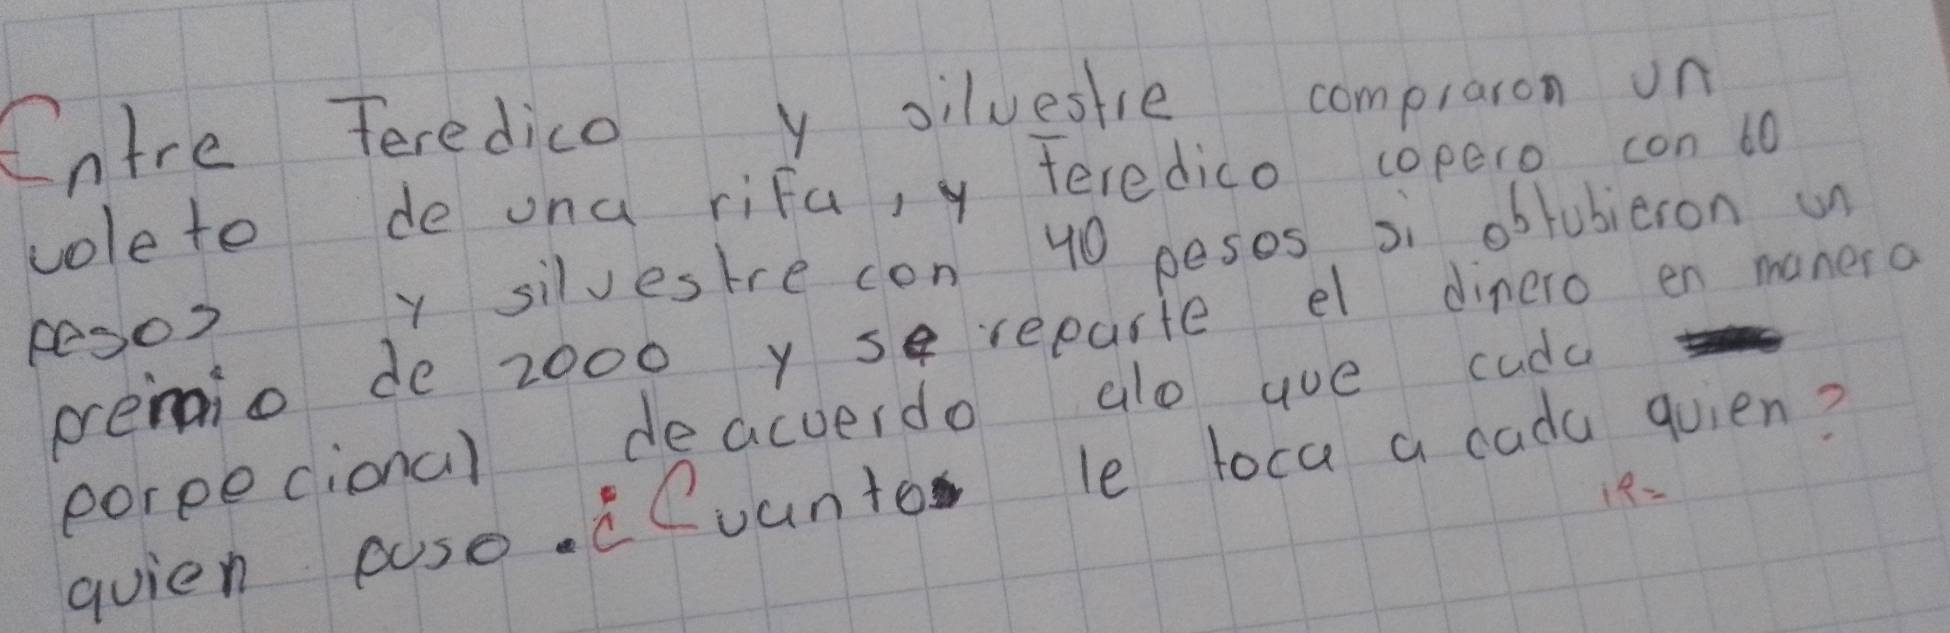 Entre Feredico y silvestre compraron un
voleto de una rifa, y feredico copero con 60
pesos y silvestre con 40 pesos si obtubieron un
premio de 2000 y se reparte el dinero en manera
porpecional de acuerdo alo que cada
quien puso. ¿Cuanto le toca a cada quien?
R=